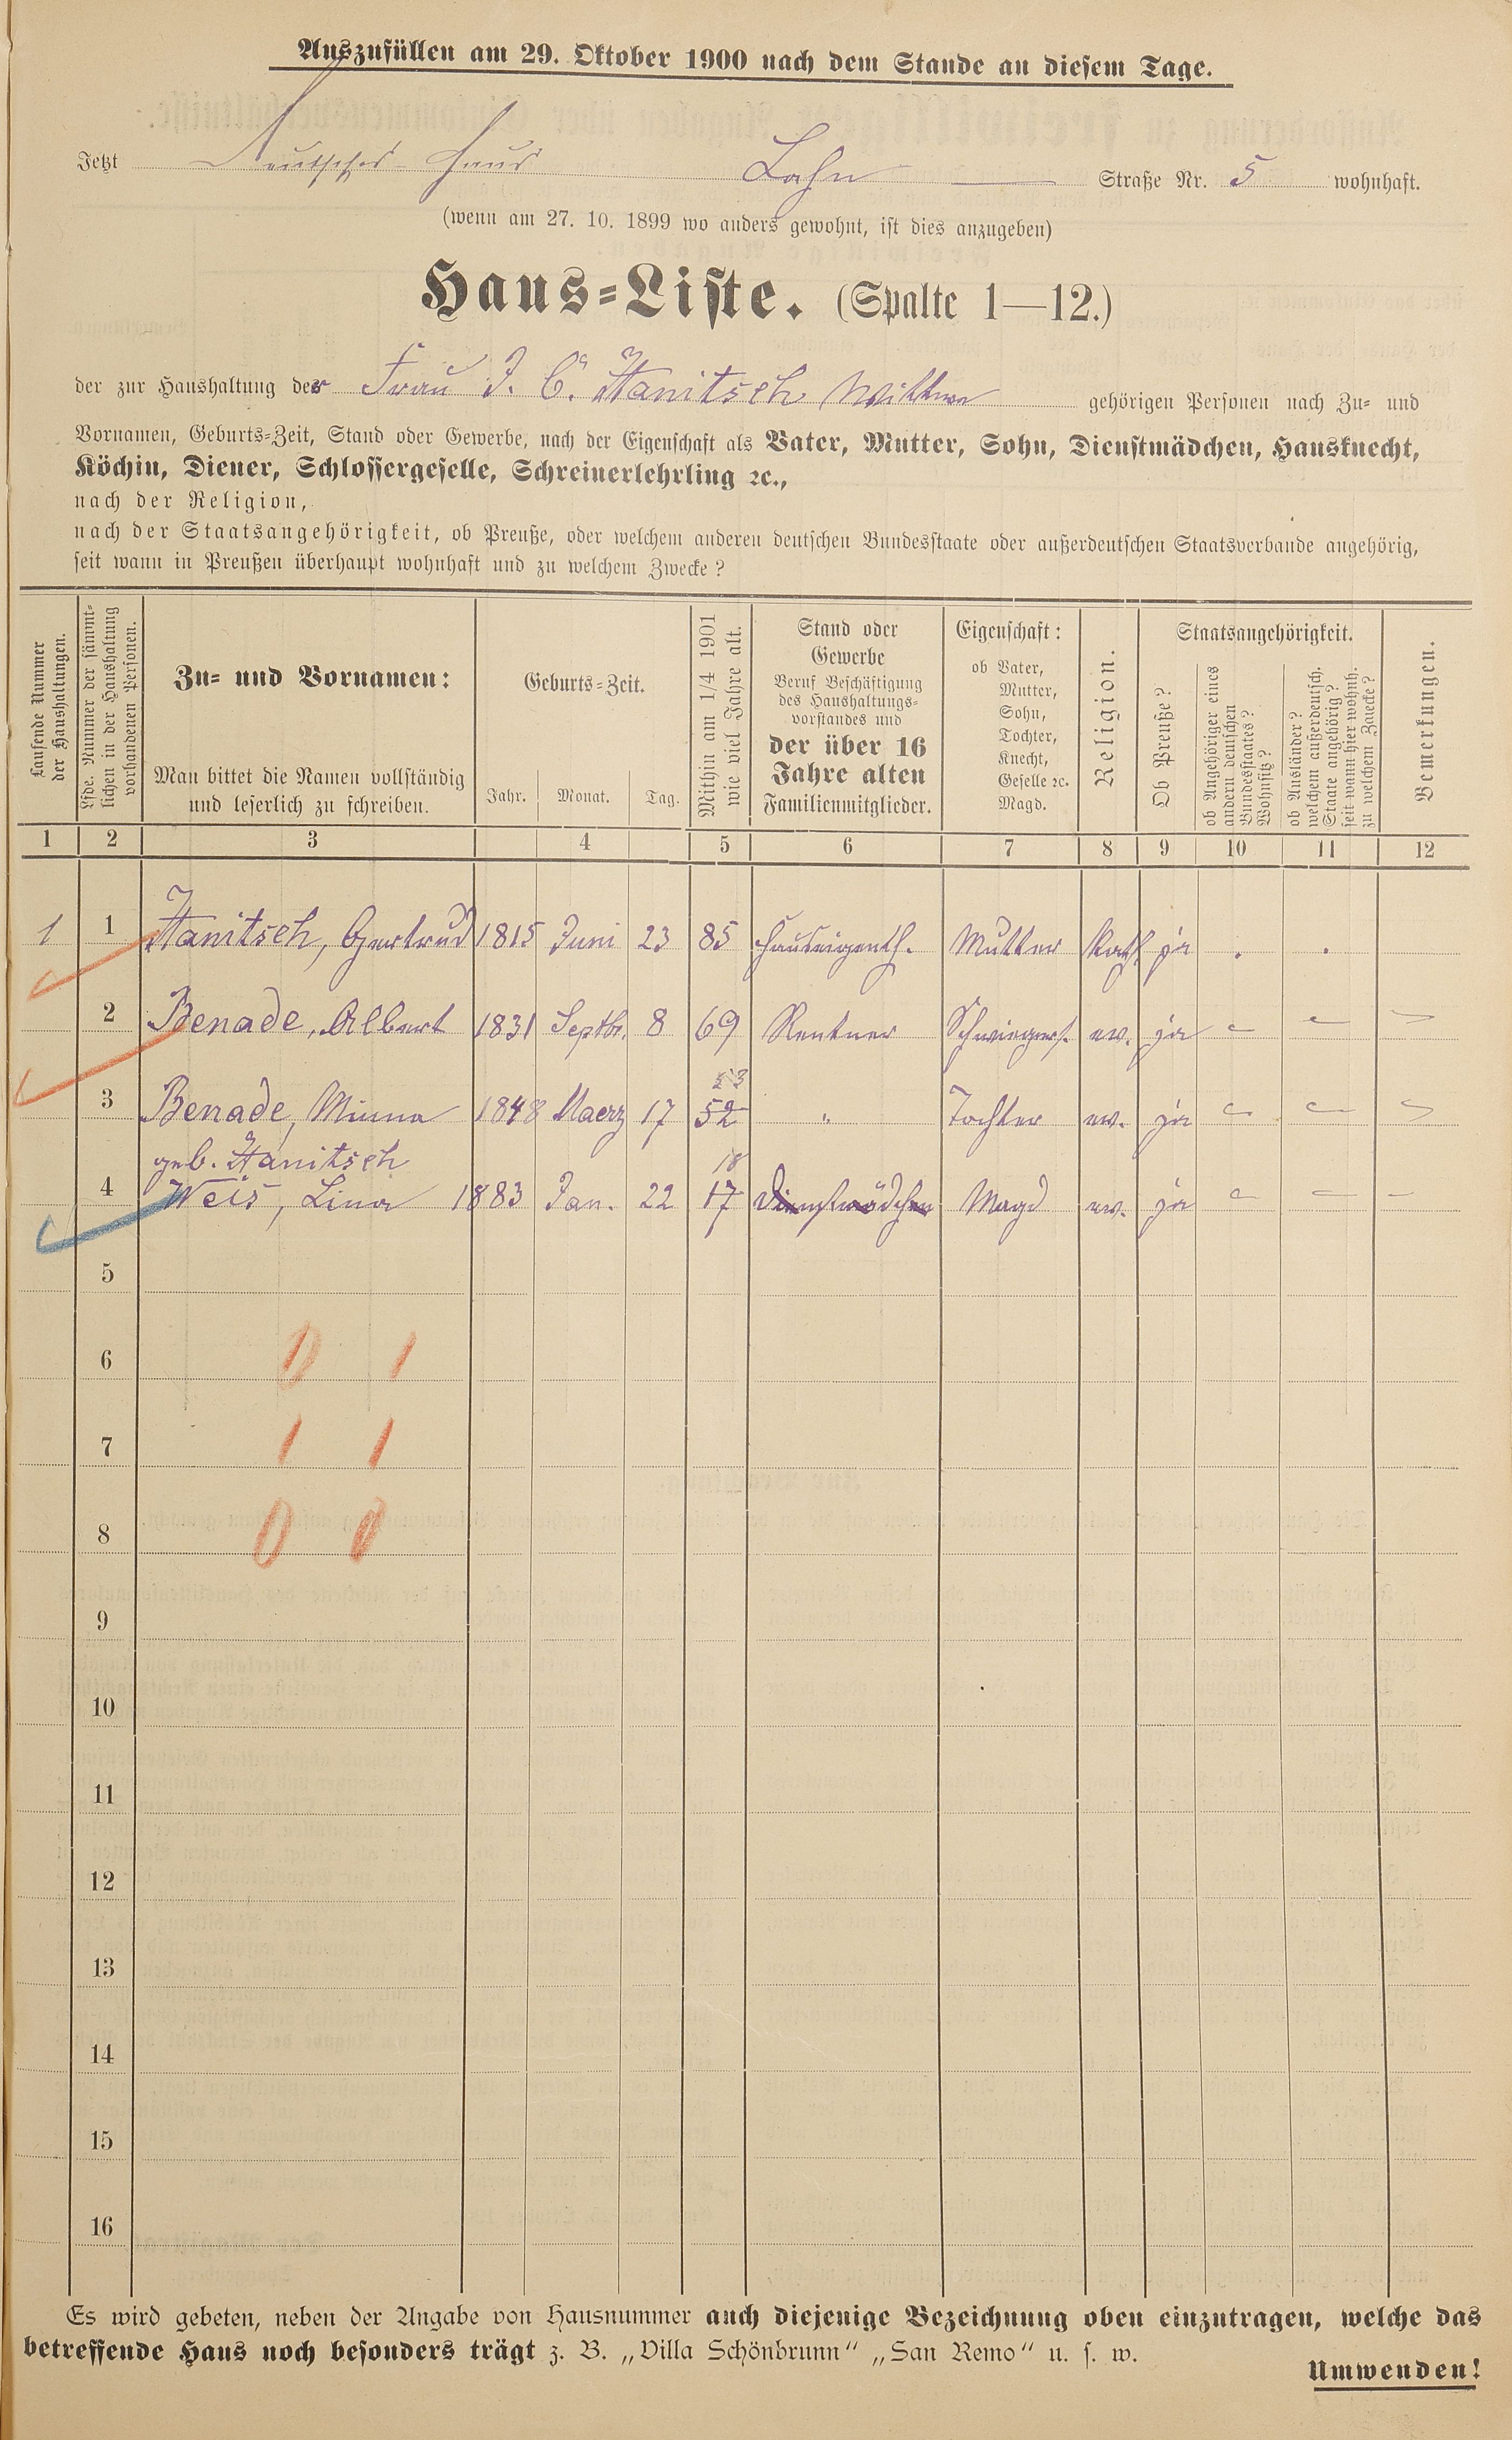 Auszufüllen am 29. Oktober 1900 nach dem Stande an diesem Tage.
Jetzt Deutsches Haus Lahn — Straße Nr. 5 wohnhaft.
(wenn am 27. 10. 1899 wo anders gewohnt, ist dies anzugeben)
Haus-Liste. (Spalte 1—12.)
der zur Haushaltung der Frau J. C. Hanitsch Wittwe gehörigen Personen nach Zu- und
Vornamen, Geburts-Zeit, Stand oder Gewerbe, nach der Eigenschaft als Vater, Mutter, Sohn, Dienstmädchen, Hausknecht,
Köchin, Diener, Schlossergeselle, Schreinerlehrling ꝛc.,
nach der Religion,
nach der Staatsangehörigkeit, ob Preuße, oder welchem anderen deutschen Bundesstaate oder außerdeutschen Staatsverbande angehörig,
seit wann in Preußen überhaupt wohnhaft und zu welchem Zwecke?
Laufende Nummer
der Haushaltungen.
Lfde. Nummer der sämmt-
lichen in der Haushaltung
vorhandenen Personen.
Zu- und Vornamen:
Man bittet die Namen vollständig
und leserlich zu schreiben.
Geburts-Zeit.
Jahr. Monat. Tag.
Mithin am 1/4 1901
wie viel Jahre alt.
Stand oder
Gewerbe
Beruf Beschäftigung
des Haushaltungs-
vorstandes und
der über 16
Jahre alten
Familienmitglieder.
Eigenschaft:
ob Vater,
Mutter,
Sohn,
Tochter,
Knecht,
Geselle ꝛc.
Magd.
Religion.
Staatsangehörigkeit.
Ob Preuße?
ob Angehöriger eines
andern deutschen
Bundesstaates?
Wohnsitz?
ob Ausländer?
welchem außerdeutsch.
Staate angehörig?
seit wann hier wohnh.
zu welchem Zwecke?
Bemerkungen.
1 2 3 4 5 6 7 8 9 10 11 12
1 1 Hanitsch, Gertrud 1815 Juni 23 85 Hauseigenth. Mutter Kath. ja . .
2 Benade, Albert 1831 Septbr. 8 69 Rentner Schwiegers. ev. ja — — —
53
3 Benade, Minna 1848 Maerz 17 52 " Tochter ev. ja — — —
geb. Hanitsch
18
4 Weis, Lina 1883 Jan. 22 17 Dienstmädchen Magd ev. ja — — —
5
6 0 1
7 1 1
8 0 0
9
10
11
12
13
14
15
16
Es wird gebeten, neben der Angabe von Hausnummer auch diejenige Bezeichnung oben einzutragen, welche das
betreffende Haus noch besonders trägt z. B. „Villa Schönbrunn“ „San Remo“ u. s. w.
Umwenden!